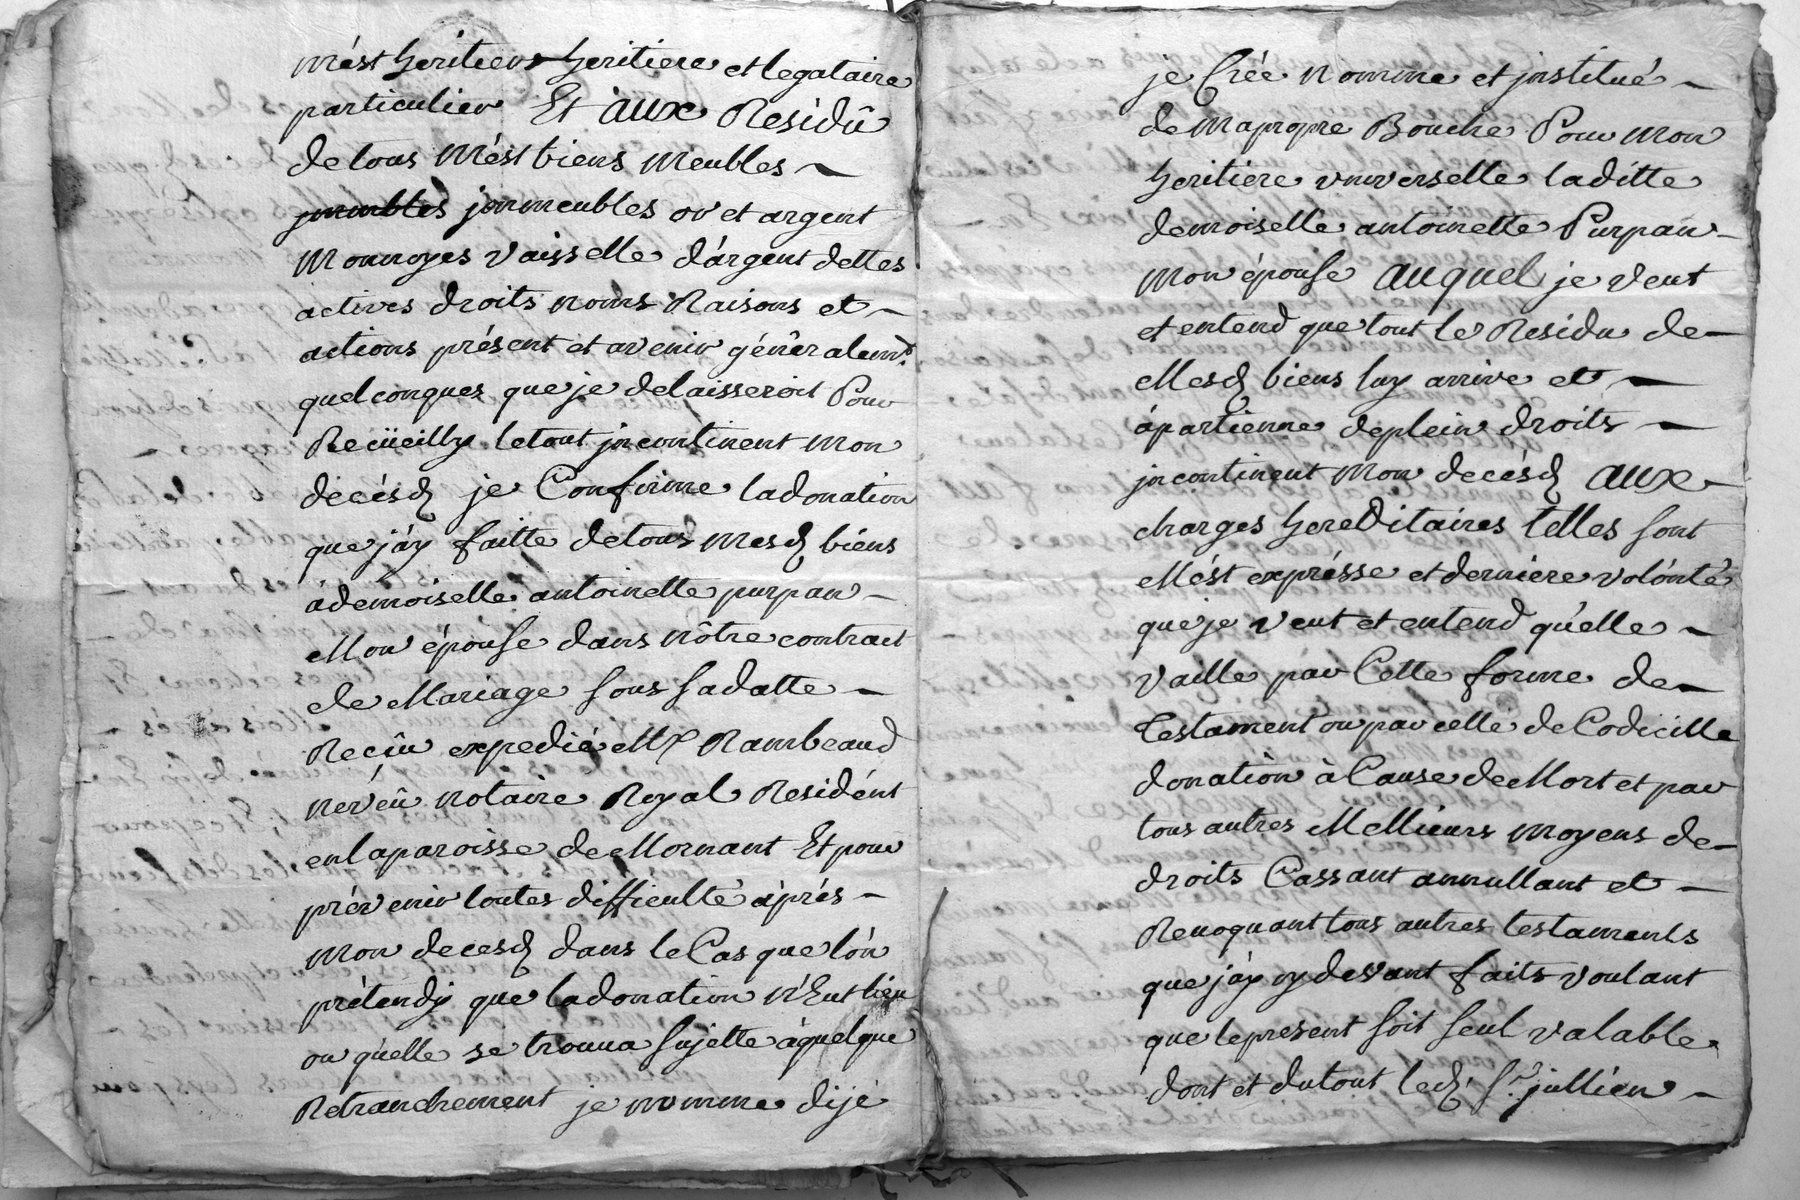 mést heritiers heritiere et legataire
particulier Et aux Residû
de tous mést biens meubles
jmmbles jonmeubles or et argent
monnoyes vaisselle d'argent dettes
actives droits noms Raisons et
actions présent et avenir généralemt.
quelconques que je delaisseroit Pour
Recüeilly le tout jncontinent mon
décésd je Confirme la donation
que j'áy faitte de tous mesd biens
à demoiselle antoinette purpan
Mon épouse dans nôtre contract
de Mariage sous sa datte
Recûu expedié Me Rambeaud
neveû notaire Royal Residént
en la paroisse de Mornant Et pour
prévenir toutes difficulté áprés
mon decesd dans le Cas que l'on
prétendy que la donation n'Eut lieu
ou qu'elle se trouva sujette à quelque
Retranchement je nomme dijé
je Crée nomme et jnstitué
de ma propre Bouche Pour mon
heritiere vniverselle laditte
demoiselle antoinette Purpan
mon épouse auquel je veut
et entend que tout le Residu de
Mesd biens luy arrive et
ápartienne de plein droits
jncontinent mon decésd aux
charges hereditaires telles sont
Mést exprésse et derniere volonté
que je veut et entend qu'elle
vaille par Cette forme de
Testament ou par celle de Codicille
donation à Cause de Mort et par
tous autres Mellieurs moyens de
droits Cassant annullant et
Revoquant tous autres testaments
que j'áy cy devant faits voulant
que le present soit seul valable
dont et du tout led. Sr. jullien